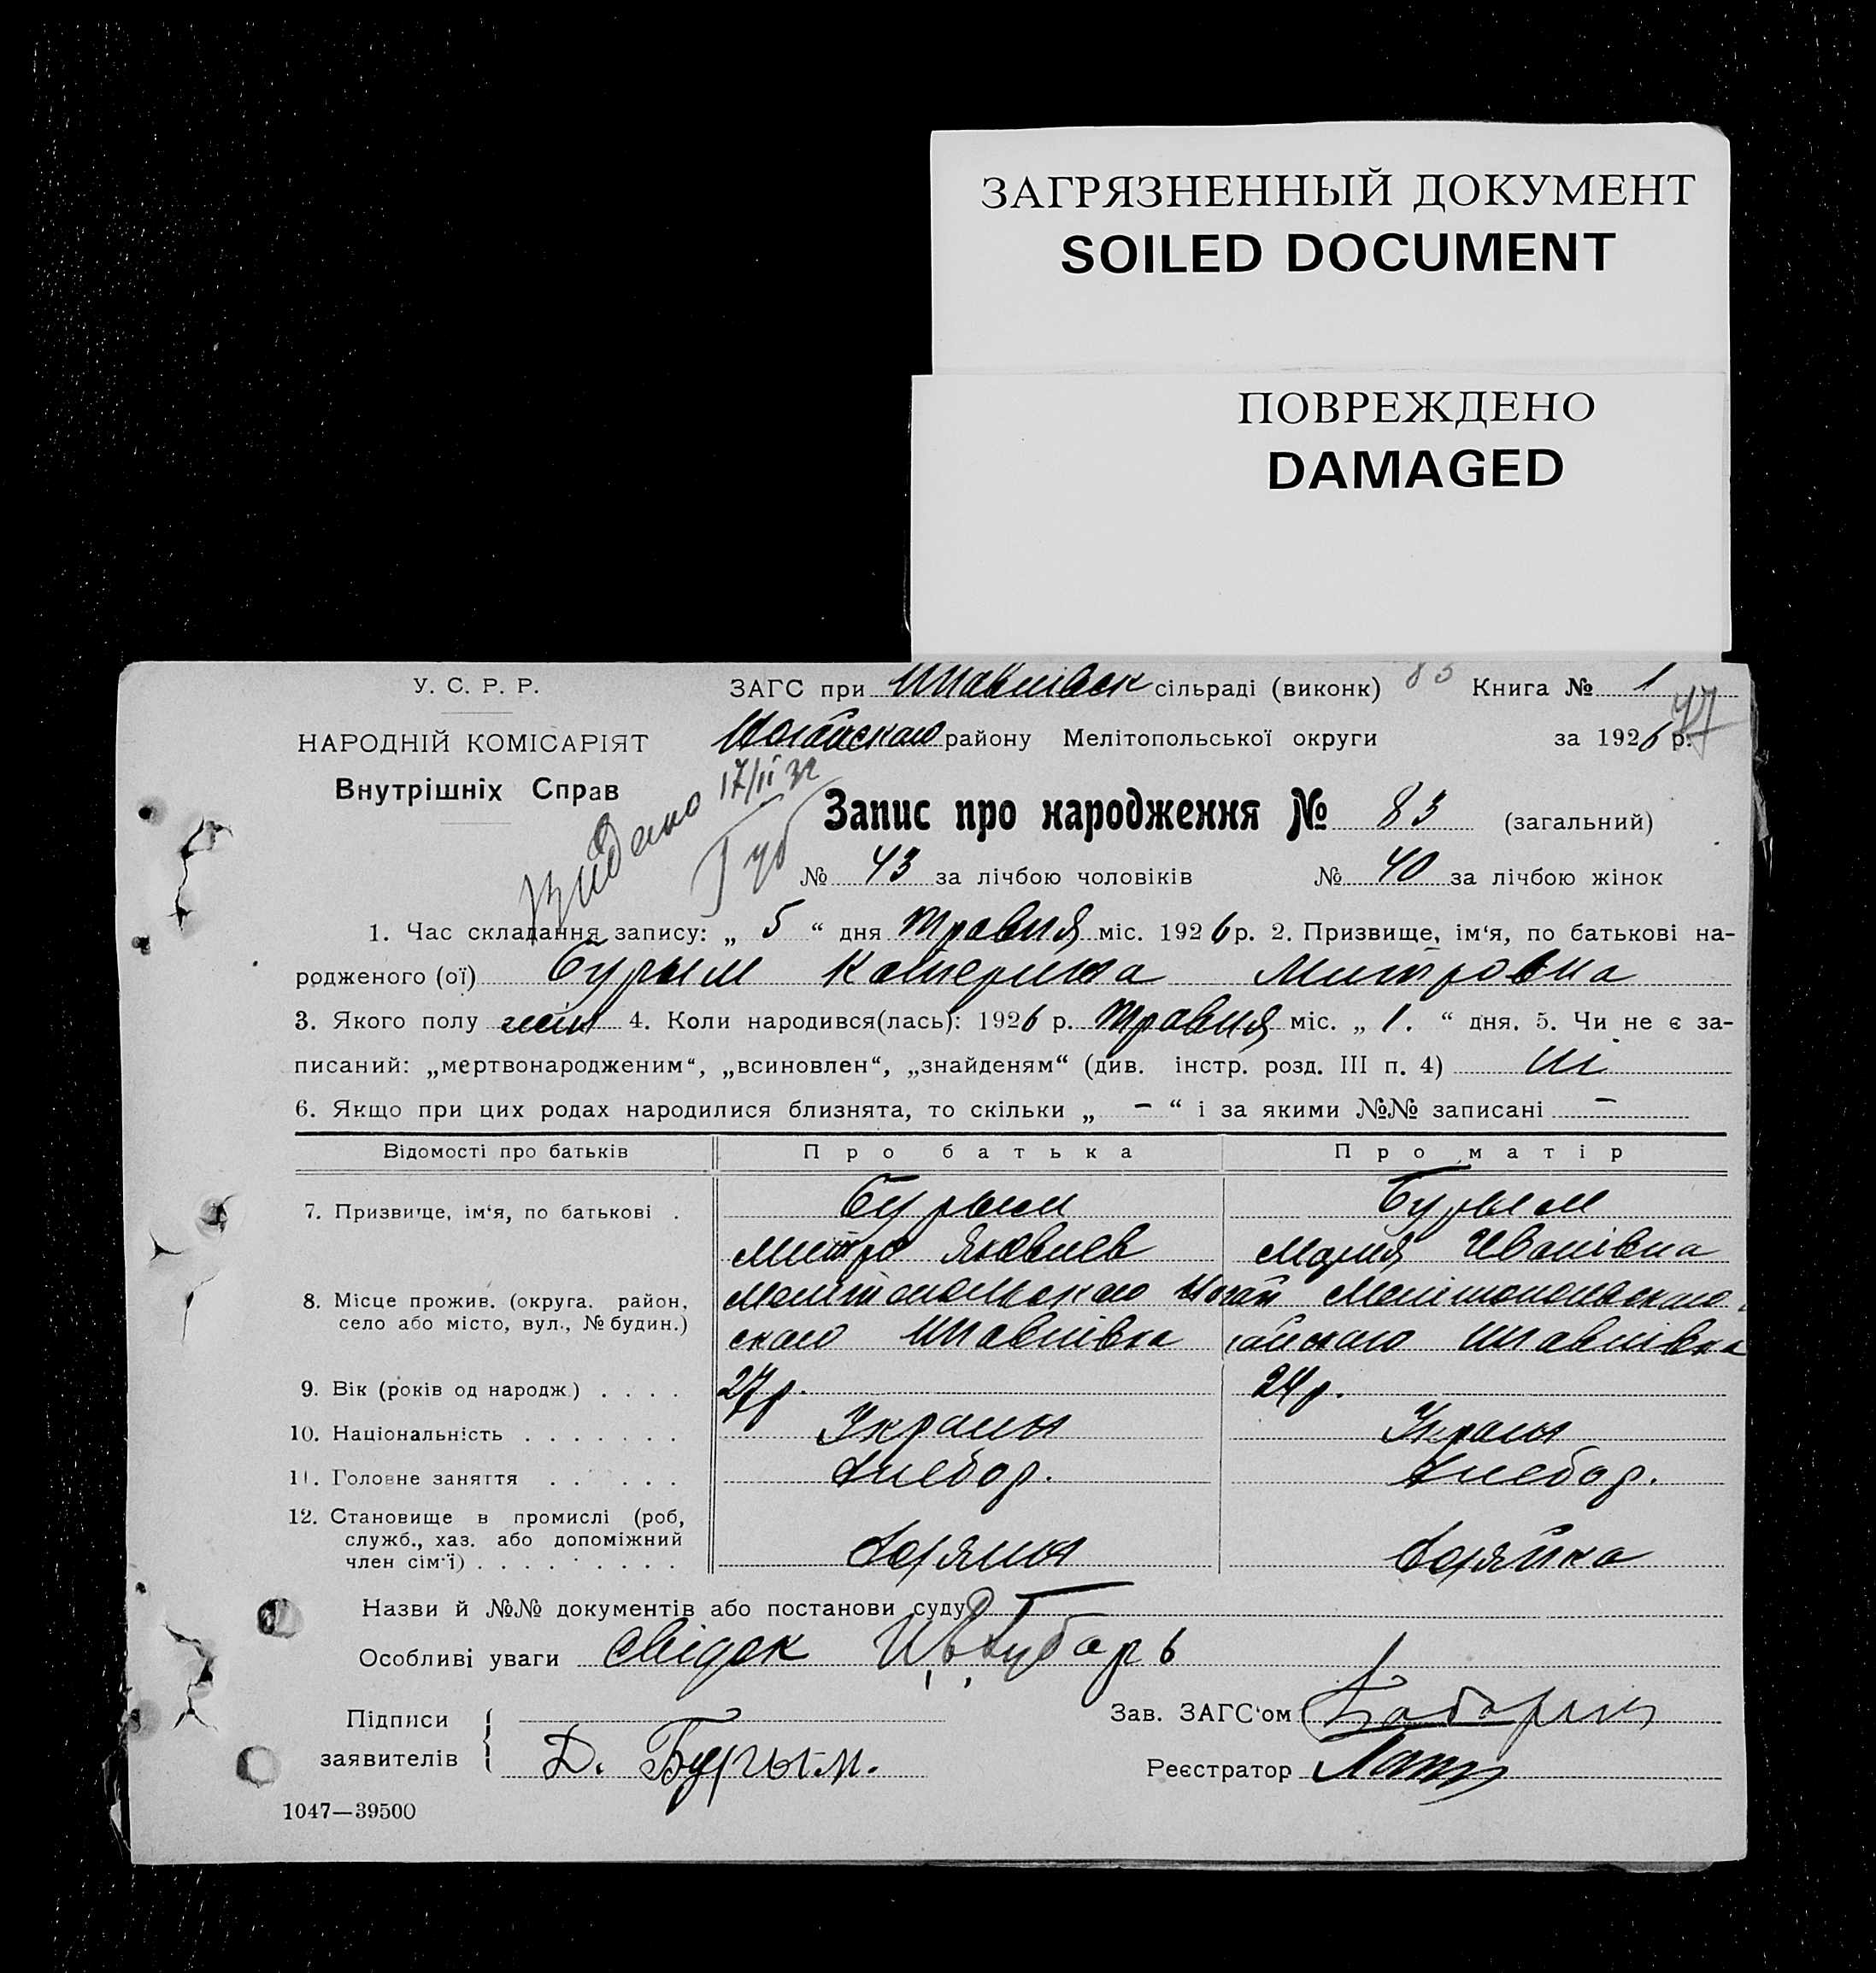 ЗАГРЯЗНЕННЫЙ ДОКУМЕНТ
SOILED DOCUMENT
ПОВРЕЖДЕНО
DAMAGED
У. С. Р. Р.
НАРОДНІЙ КОМІСАРІЯТ
Внутрішніх Справ
ЗАГС при сільраді (виконк) 83 Книга № 1
47
Ногайского району Мелітопольської округи за 1926 р.
Видано 17/II 32
Запис про народження № 83 (загальний)
№ 43 за лічбою чоловіків № 40 за лічбою жінок
1. Час складання запису: „ 5 “ дня Травня міс. 1926 р. 2. Призвище, ім‘я, по батькові на-
родженого (ої) Бурым Катерина Митровна
3. Якого полу жін 4. Коли народився(лась): 1926 р. Травня міс. „ 1. “ дня. 5. Чи не є за-
писаний: „мертвонародженим“, „всиновлен“, „знайденям“ (див. інстр. розд. III п. 4) ні
6. Якщо при цих родах народилися близнята, то скільки „ – “ і за якими №№ записані –
Відомості про батьків Про батька Про матір
7. Призвище, ім‘я, по батькові . Бурым Бурым
Митро Яковлев Мария Иванівна
8. Місце прожив. (округа. район,
село або місто, вул., № будин.)
Мелітопольского Ногай Мелітопольского
ского гайского
9. Вік (років од народж.) . . . . 27 р. 24 р.
10. Національність . . . . . . . Украин Украин
11. Головне заняття . . . . . . Хлебор. Хлебор.
12. Становище в промислі (роб,
служб., хаз. або допоміжний
член сім‘ї) . . . . . . . . .
Назви й №№ документів або постанови суду
Особливі уваги свідок
Підписи
заявителів
Д. Бурым.
Зав. ЗАГС‘ом
Реєстратор
1047—39500